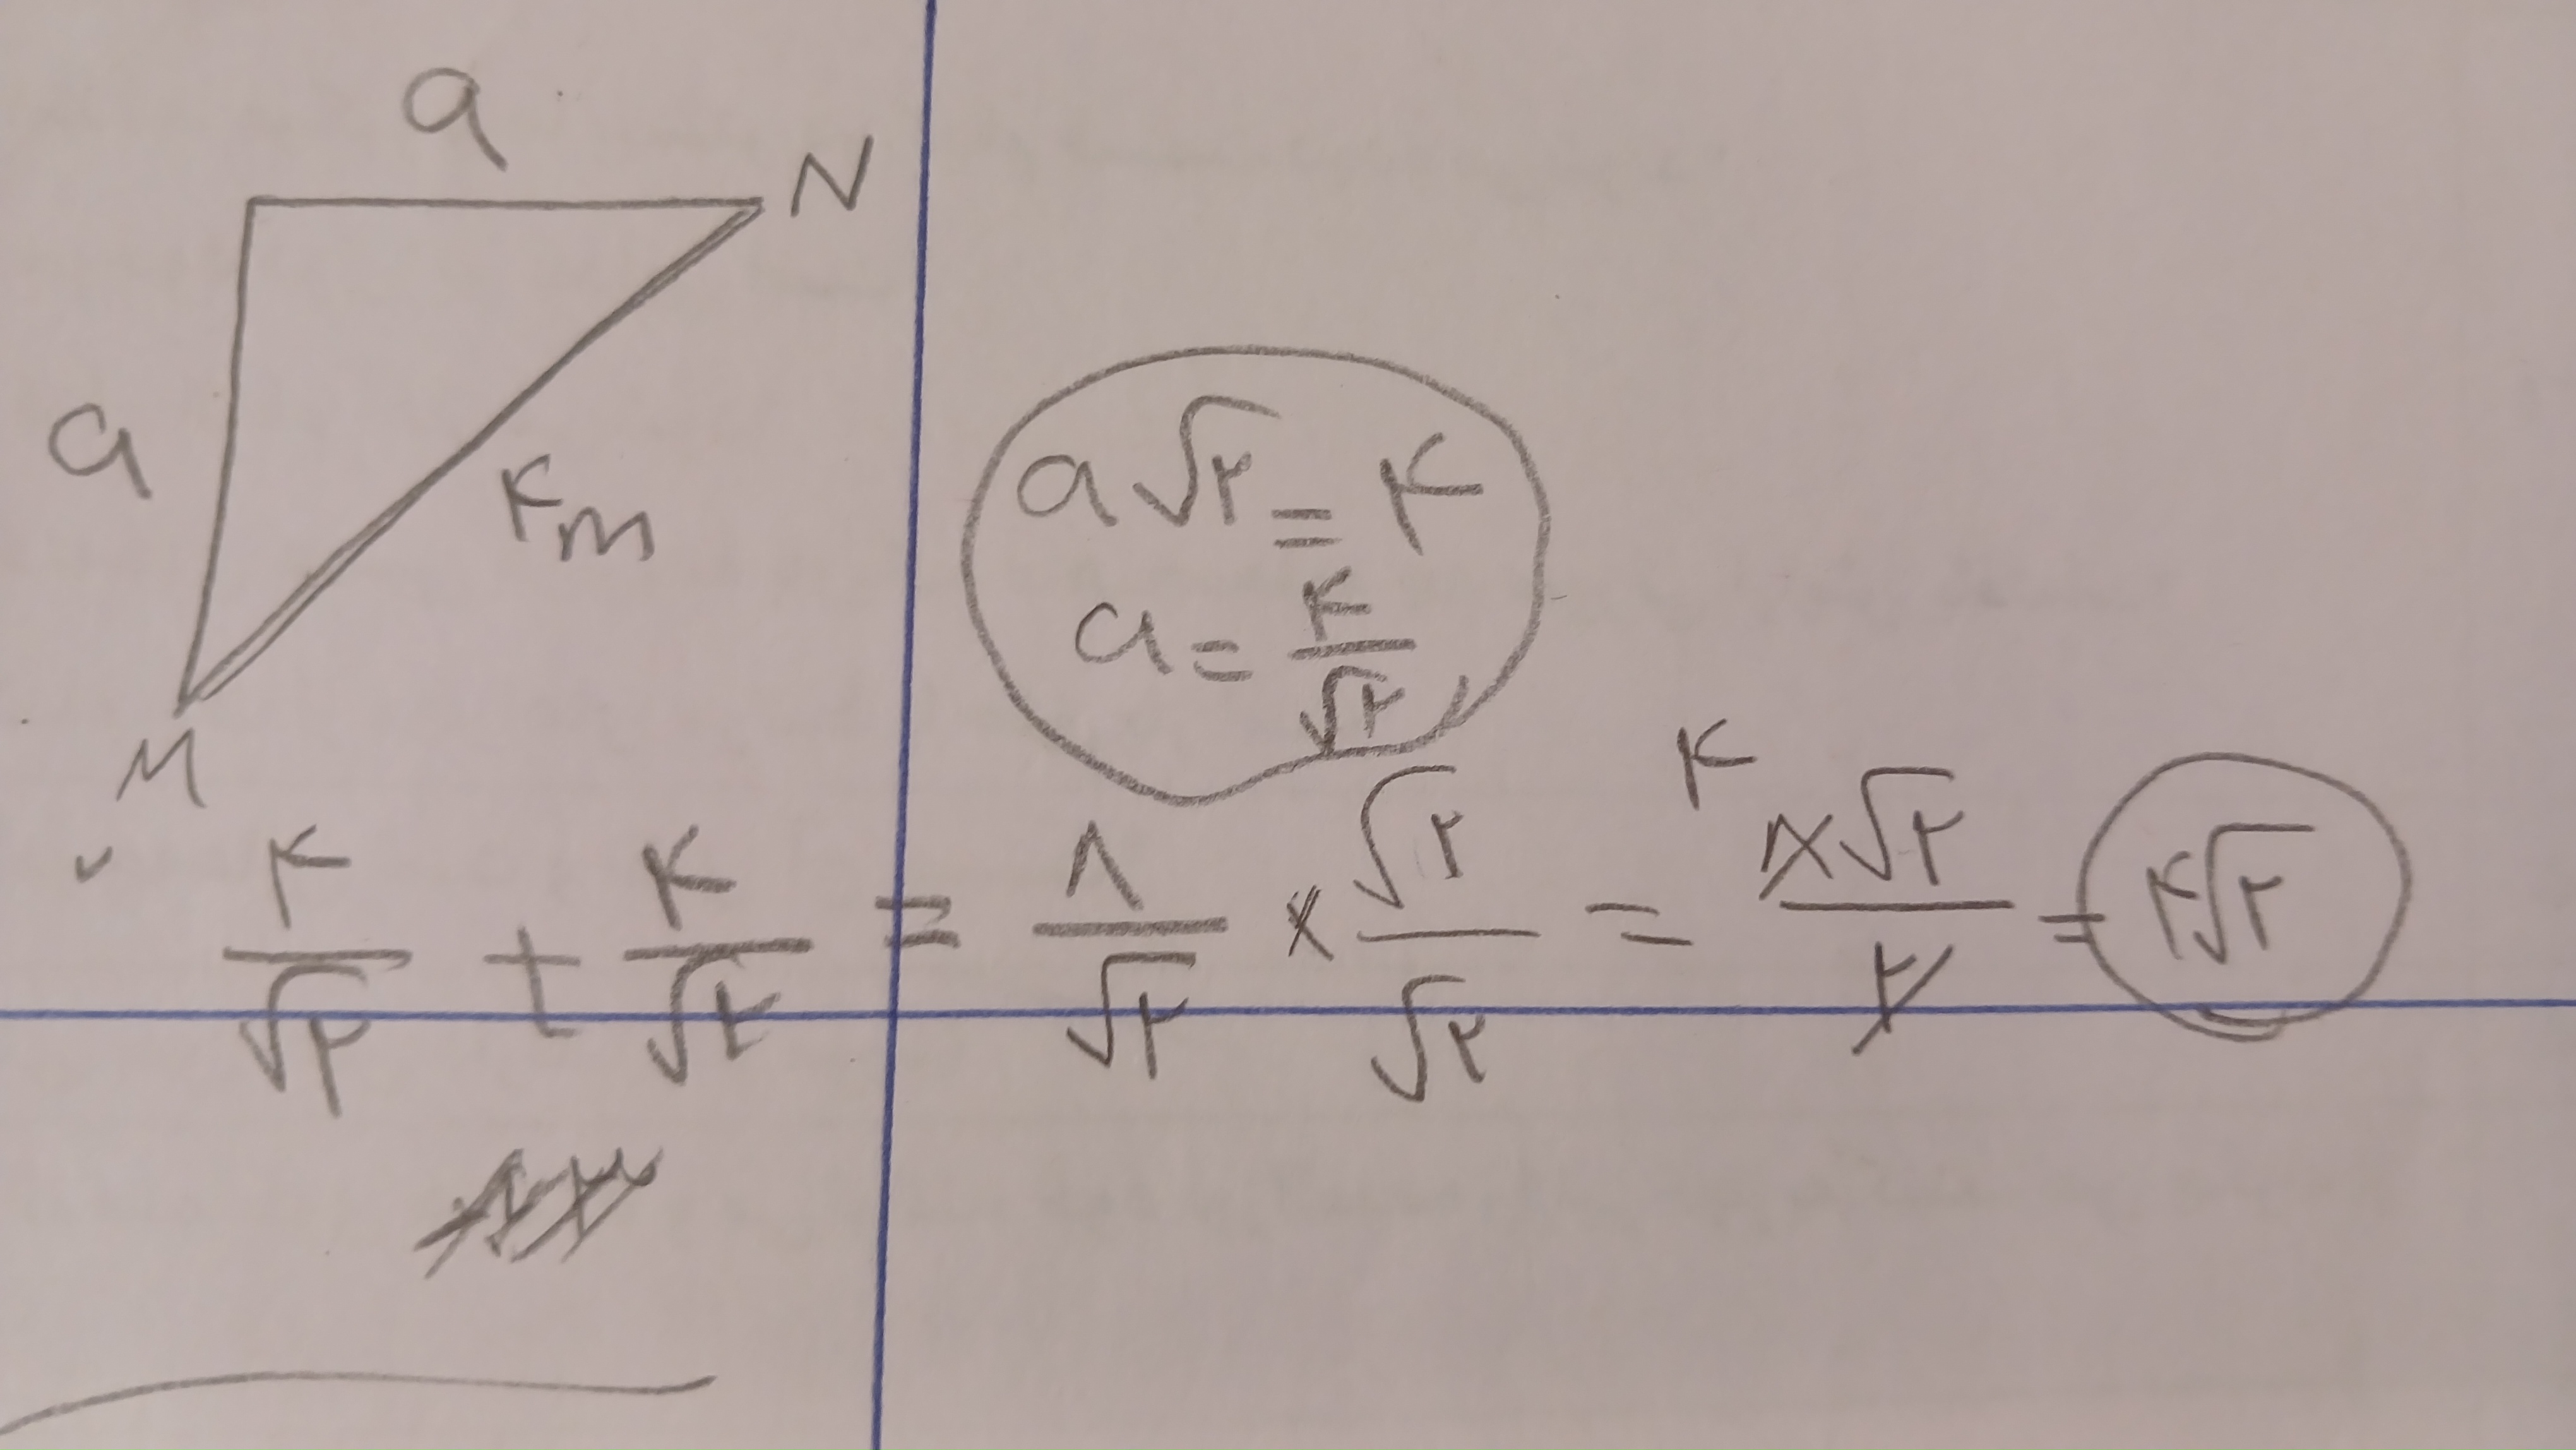 a
N
a
۴m
M
a√۲ = ۴
a = ۴/√۲
۴/√۲ + ۴/√۲ = ۸/√۲ × √۲/√۲ = ۸√۲/۲ = ۴√۲
۴